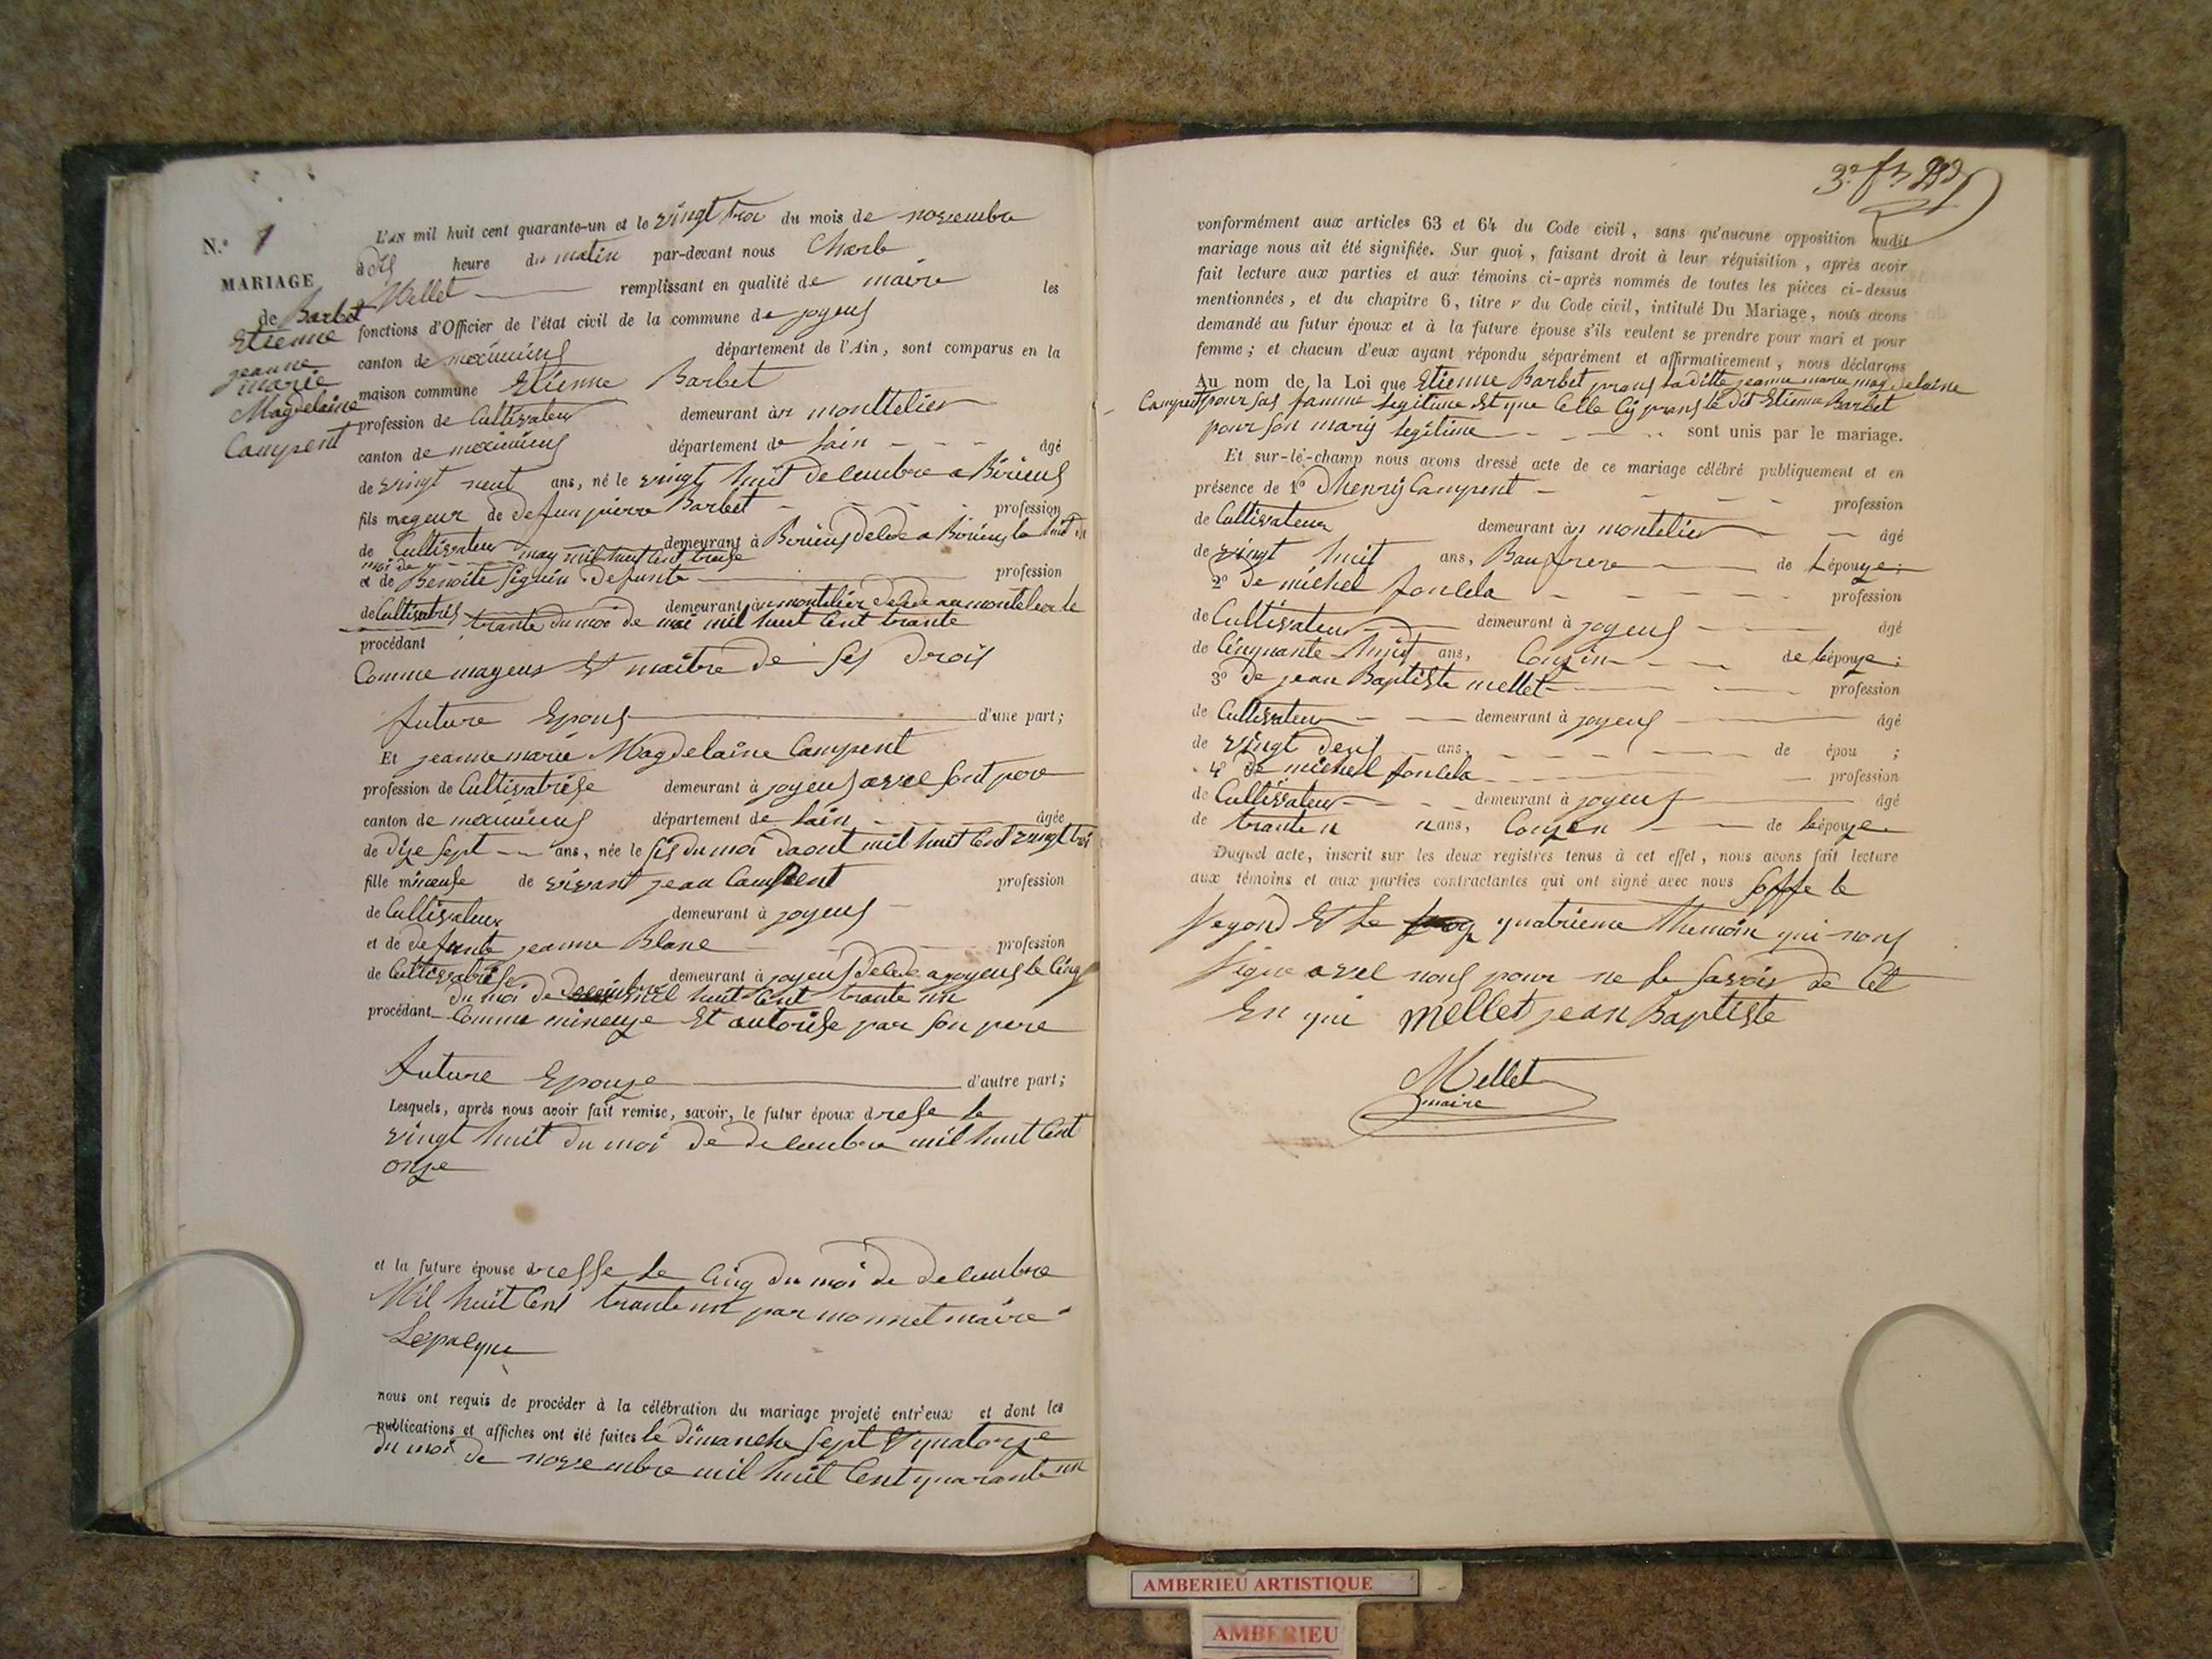 N.º 1
MARIAGE
de Barbet
Etienne
jeanne
marie
Magdelaine
Campent
L'AN mil huit cent quarante-un et le vingt troi du mois de novembre
à dis heure du matin par-devant nous Charle
Mellet remplissant en qualité de maire les
fonctions d'Officier de l'état civil de la commune de joyeus
canton de meximieus département de l'Ain, sont comparus en la
maison commune Etienne Barbet
profession de Cultivateur demeurant à monttelier
canton de meximieus département de lain âgé
de vingt neuf ans, né le vingt huit delembre a Birieus
fils mageur de defun pierre Barbet profession
de Cultivateur demeurant à Birieus deledé a Birieus le huit du
moi de may mil huit Cent treise
et de Benoite Siguin defunte profession
de Cultivatris demeurant à montelier deledé au montelier le
trante du moi de mai mil huit Cent trante
procédant
Comme mageur Et maitre de Ses Drois
future Epous d'une part;
Et jeanne marie Magdelaine Campent
profession de Cultivatrise demeurant à joyeus avel sont pere
canton de meximieus département de lain âgée
de dise sept ans, née le sis du moi daout mil huit Cent vingt troi
fille mineuse de vivant jean Campent profession
de Cultivateur demeurant à joyeus
et de defunte jeanne Blanc profession
de Cultivatrise demeurant à joyeus deledé a joyeus le Cinq
du moi de mil huit Cent trante un
procédant Comme mineuse Et autorise par Son pere
future Epouze d'autre part;
Lesquels, après nous avoir fait remise, savoir, le futur époux drese le
vingt huit du moi de delembre mil huit Cent
onze
et la future épouse dresse le Cinq du moi de delembre
Mil huit Cent trante un par monnet maire
nous ont requis de procéder à la célébration du mariage projeté entr'eux et dont les
publications et affiches ont été faites le dimanche Sept Et quatorze
du moi de novembre mil huit Cent quarante un
conformément aux articles 63 et 64 du Code civil, sans qu'aucune opposition audit
mariage nous ait été signifiée. Sur quoi, faisant droit à leur réquisition, après avoir
fait lecture aux parties et aux témoins ci-après nommés de toutes les pièces ci-dessus
mentionnées, et du chapitre 6, titre v du Code civil, intitulé Du Mariage, nous avons
demandé au futur époux et à la future épouse s'ils veulent se prendre pour mari et pour
femme; et chacun d'eux ayant répondu séparément et affirmativement, nous déclarons
Au nom de la Loi que Etienne Barbet prans laditte jeanne marie magdelaine
Campent pour sas famme legitime Et que Celle Cij prans le dit Etienne Barbet
pour Son marij legitime sont unis par le mariage.
Et sur-le-champ nous avons dressé acte de ce mariage célébré publiquement et en
présence de 1º Dhenrij Campent profession
de Cultivateur demeurant à montelier âgé
de vingt huit ans, Baufrere de Lépouze;
2º De michel fonlela profession
de Cultivateur demeurant à joyeus âgé
de Cinquante huit ans, Couzin de lépouze;
3º De jean Baptiste mellet profession
de Cultivateur demeurant à joyeus âgé
de vingt deus ans, de épou ;
4º De michel fonlela profession
de Cultivateur demeurant à joyeus âgé
de trante n ans, Couzen de lépouze
Duquel acte, inscrit sur les deux registres tenus à cet effet, nous avons fait lecture
aux témoins et aux parties contractantes qui ont signé avec nous Soffe le
Segond Et Le quatrieme themoin qui nons
Signe avel nous pour ne le Savoir de Cet
En qui mellet jean Baptiste
Mellet
maire
AMBERIEU ARTISTIQUE
AMBERIEU